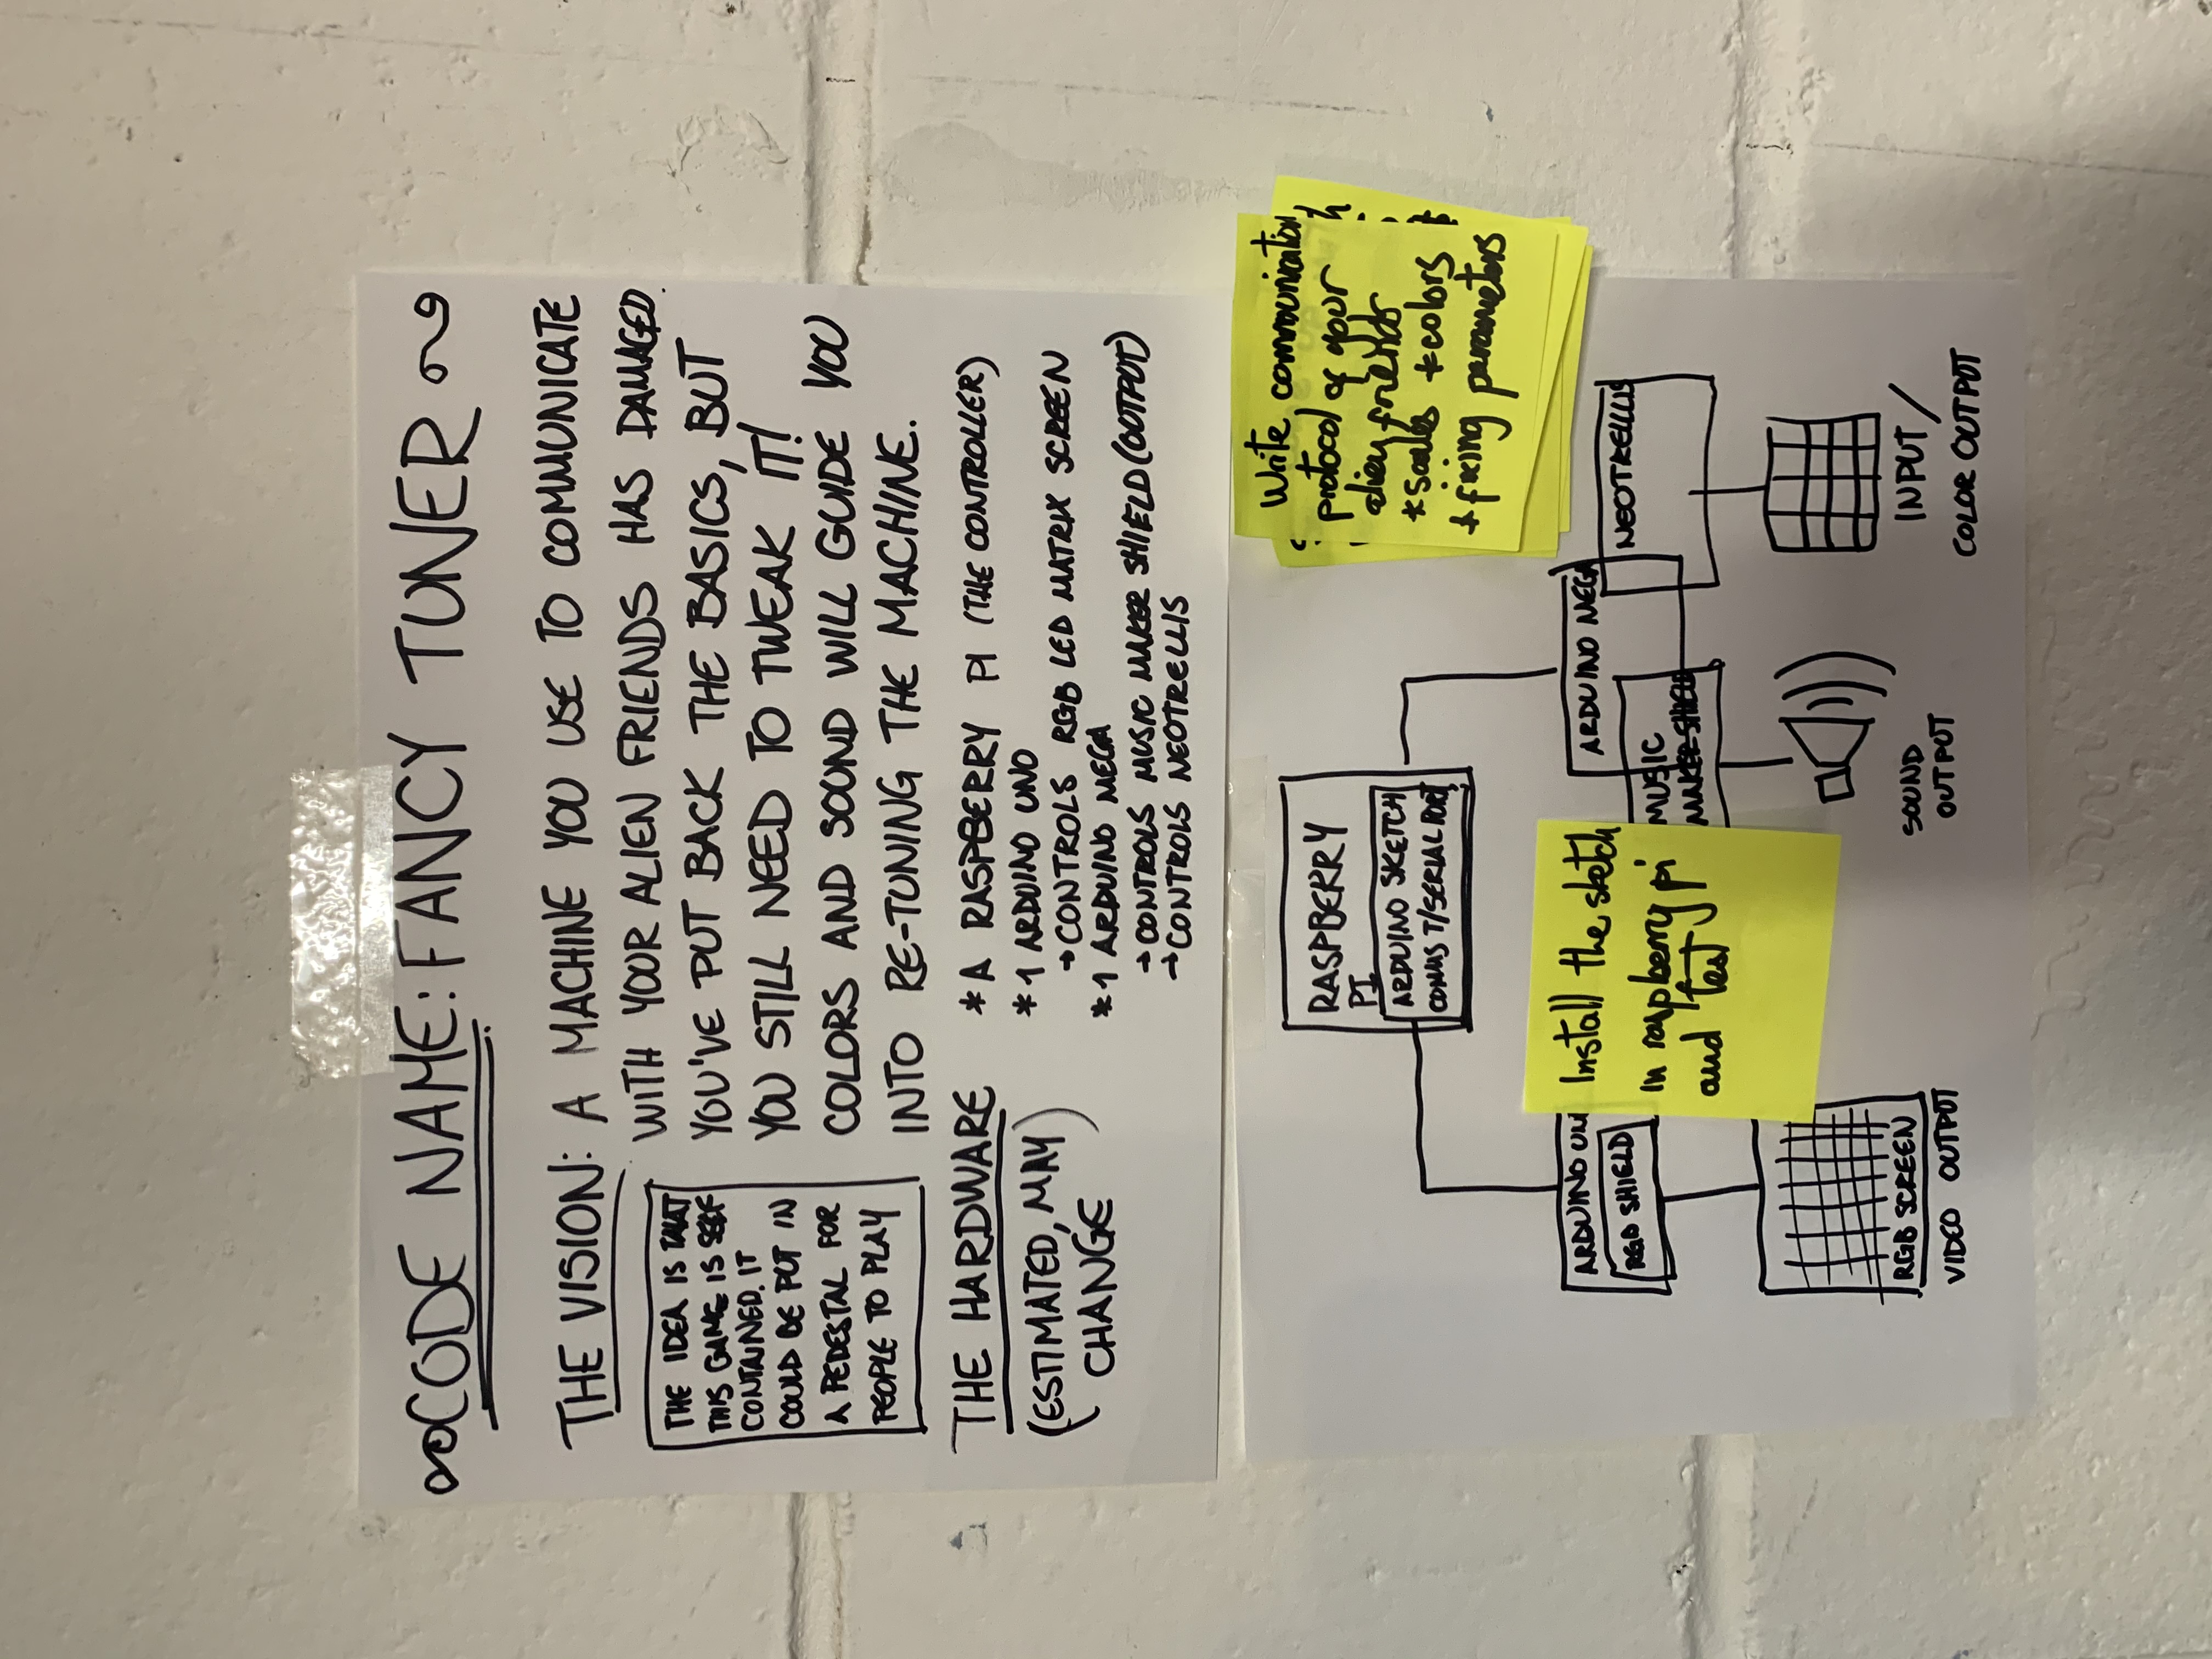 CODE NAME: FANCY TUNER
THE VISION: A MACHINE YOU USE TO COMMUNICATE
WITH YOUR ALIEN FRIENDS HAS DAMAGED.
YOU'VE PUT BACK THE BASICS, BUT
YOU STILL NEED TO TWEAK IT!
COLORS AND SOUND WILL GUIDE YOU
INTO RE-TUNING THE MACHINE.
THE IDEA IS THAT
THIS GAME IS SELF
CONTAINED. IT
COULD BE PUT IN
A PEDESTAL FOR
PEOPLE TO PLAY
THE HARDWARE
(ESTIMATED, MAY
CHANGE)
* A RASPBERRY PI (THE CONTROLLER)
* 1 ARDUINO UNO
→ CONTROLS RGB LED MATRIX SCREEN
* 1 ARDUINO MEGA
→ CONTROLS MUSIC MAKER SHIELD (OUTPUT)
→ CONTROLS NEOTRELLIS
RASPBERRY
PI
ARDUINO SKETCH
COMMS T/SERIAL PORT
Write communication
protocol of your
alien friends
* Scales * colors
* fixing parameters
ARDUINO UN
RGB SHIELD
RGB SCREEN
VIDEO OUTPUT
Install the sketch
in raspberry pi
and test
ARDUINO MEGA
MUSIC
MAKER SHIELD
SOUND
OUTPUT
NEOTRELLIS
INPUT /
COLOR OUTPUT